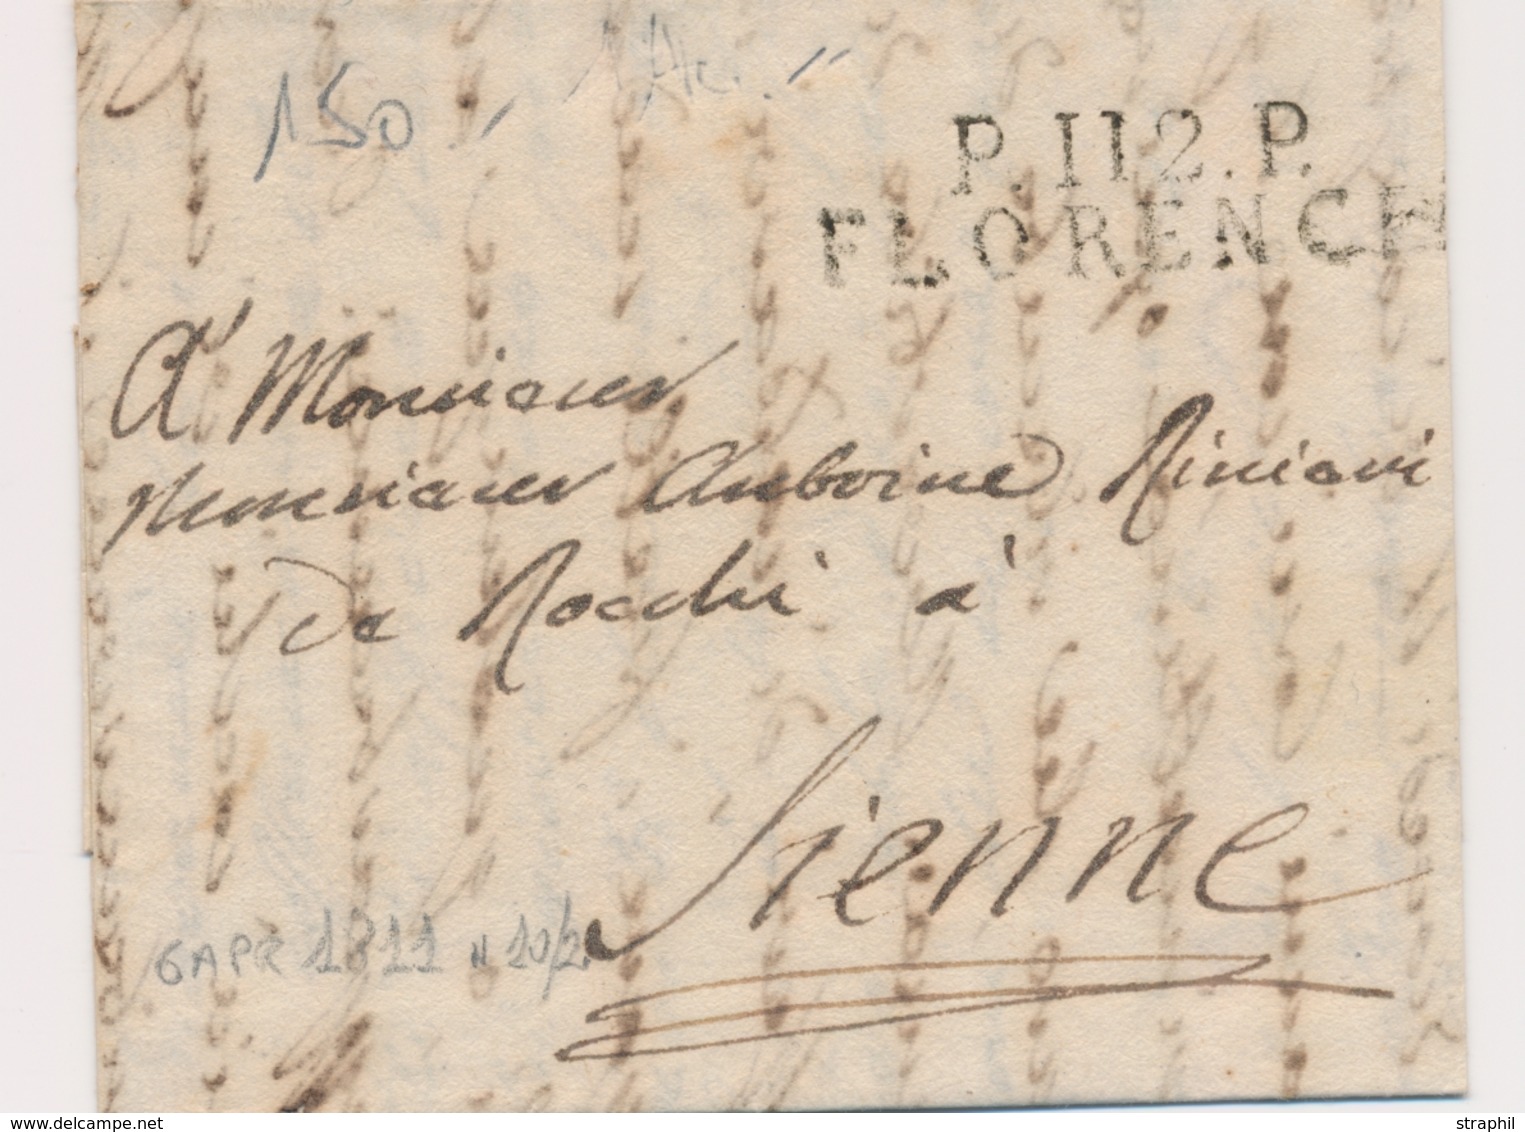 150
P.112.P.
FLORENCE
A Monsieur
Monsieur Antoine Riniari
De Rocchi à
Sienne
6 APR 1811 N 10/2
delcampe.net
straphil